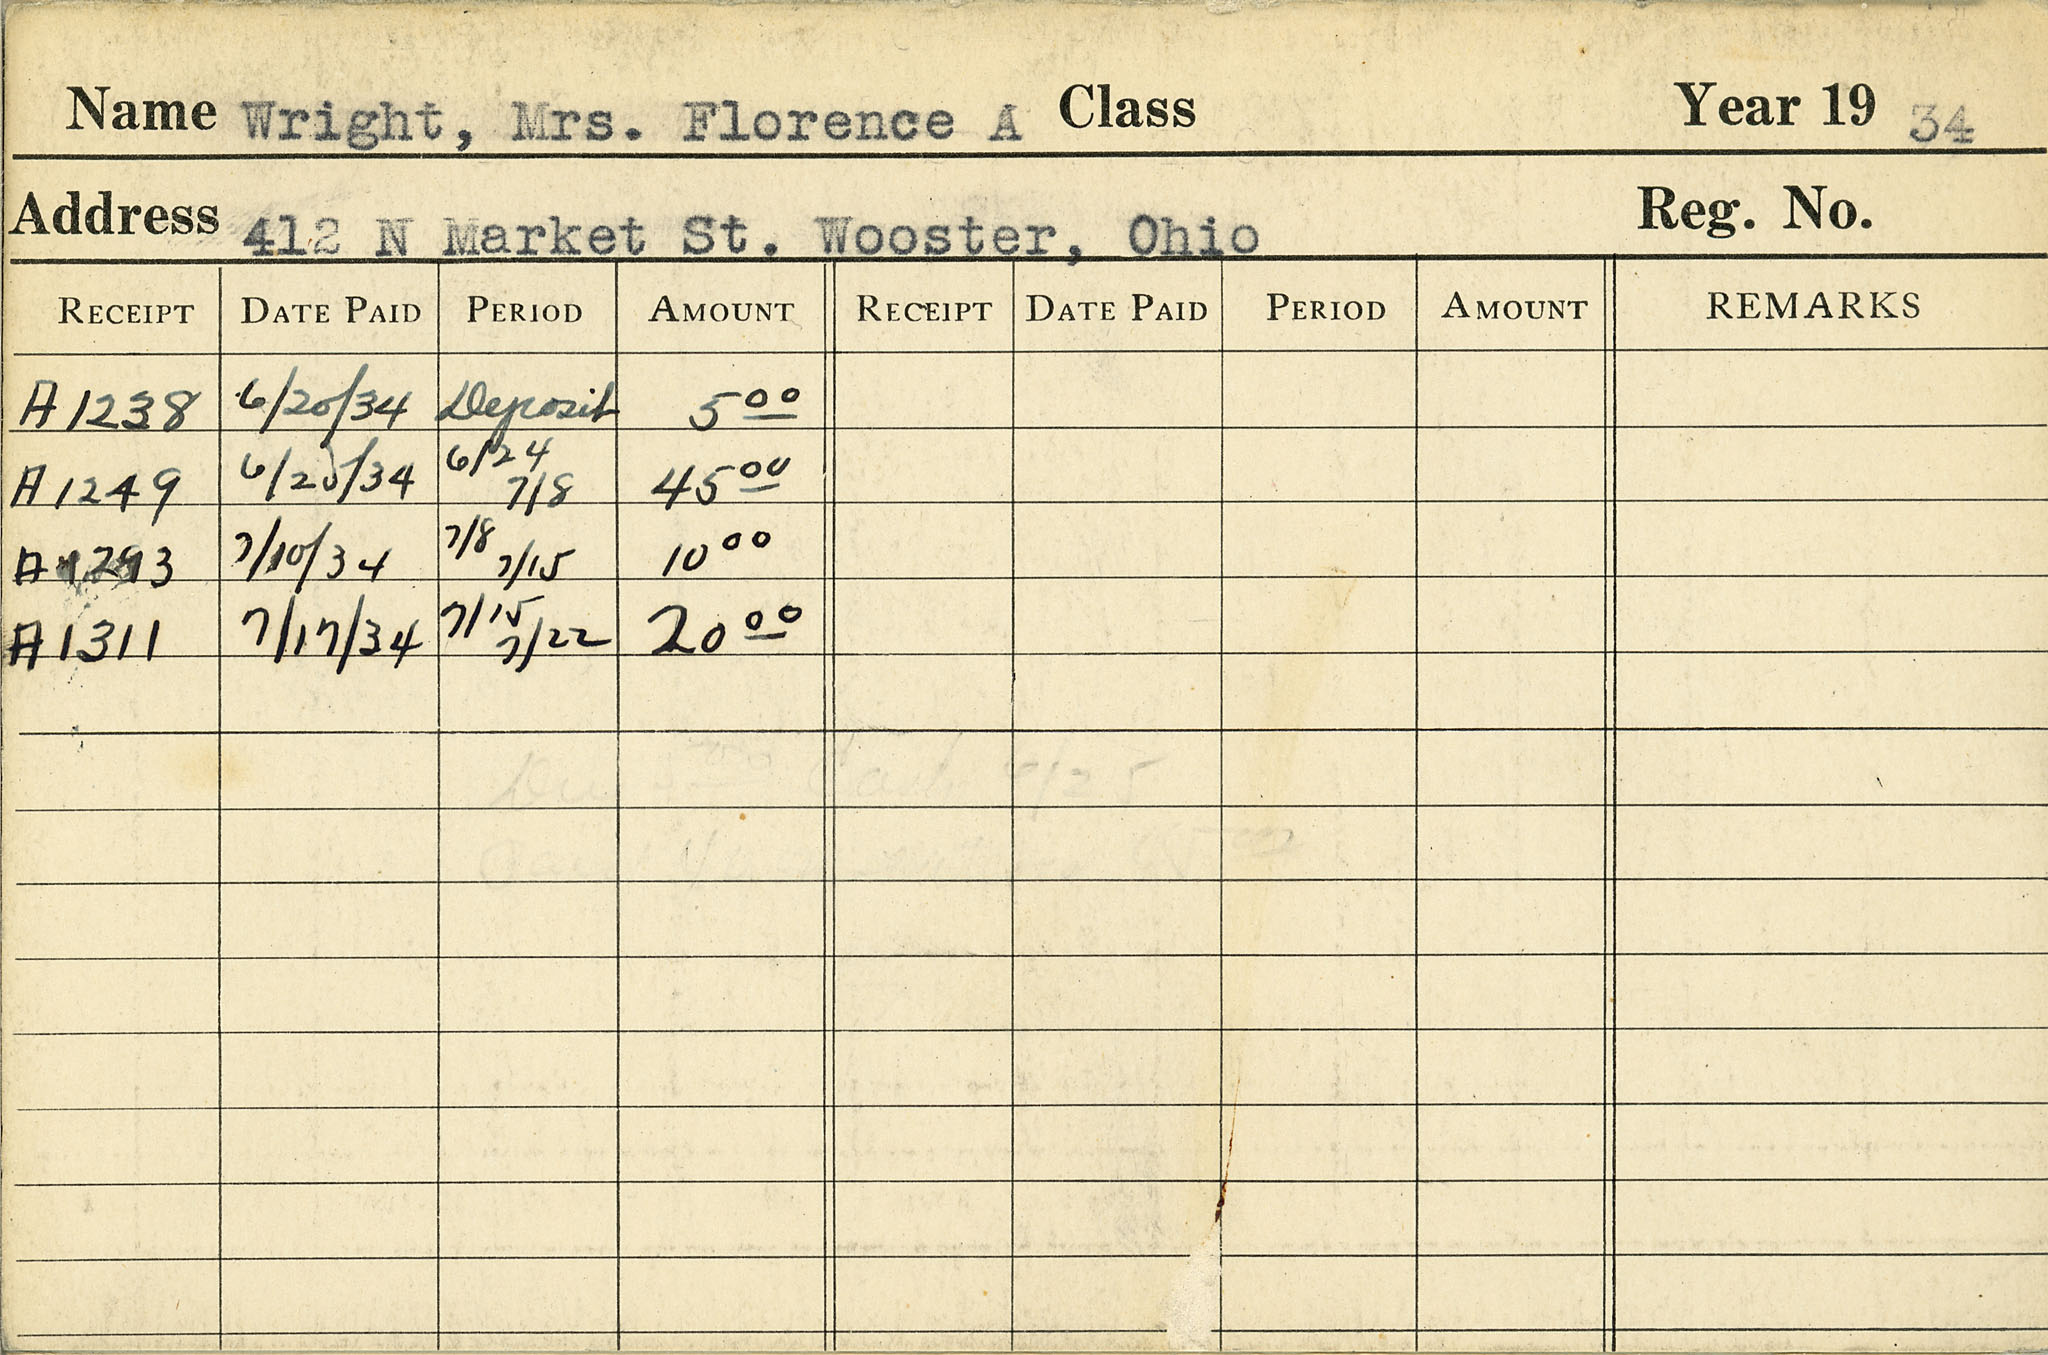 Name Wright, Mrs. Florence A Class Year 19 34
Address 412 N Market St. Wooster, Ohio Reg. No.
RECEIPT DATE PAID PERIOD AMOUNT RECEIPT DATE PAID PERIOD AMOUNT REMARKS
A1238 6/20/34 Deposit 5 00
A1249 6/25/34 6/24 7/8 45 00
A1293 7/10/34 7/8 7/15 10 00
A1311 7/17/34 7/15 7/22 20 00